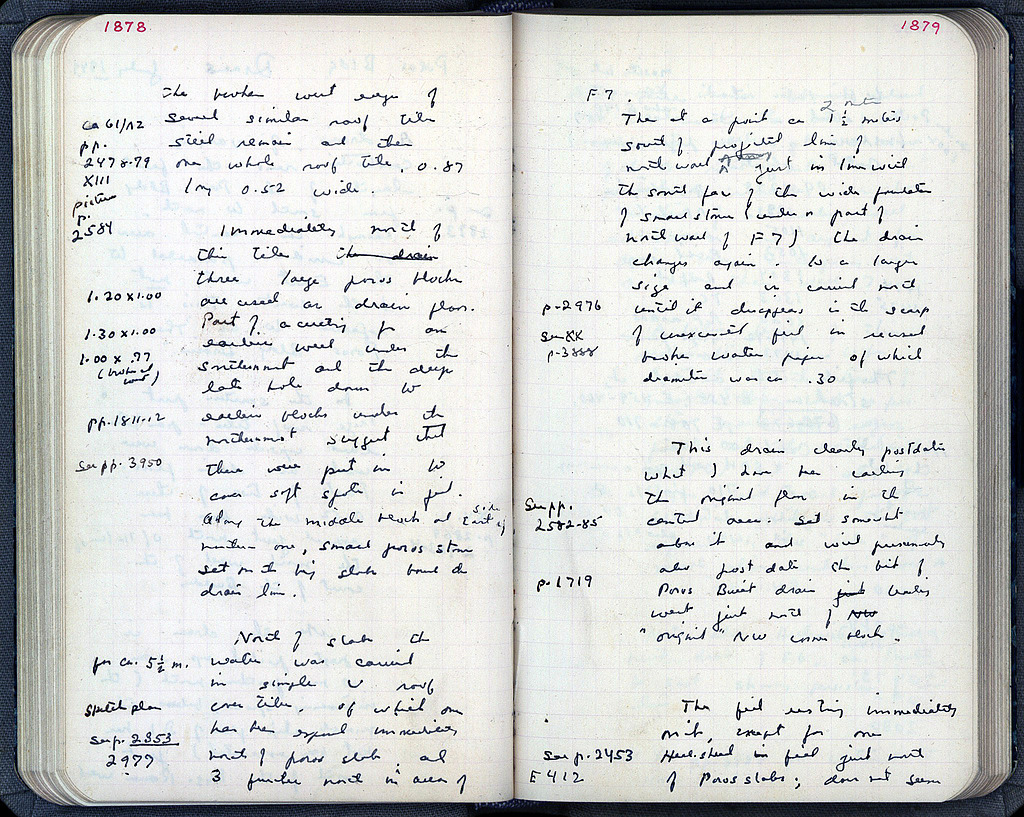 1878
The broken west edge of
Ca 61/12
several similar roof tiles
pp.
2478-79
XIII
picture
p.
2584
still remain and then
one whole roof tile, 0.87
long 0.52 wide.
Immediately north of
this tile the drain
three large poros blocks
1.20 x 1.00
are used as drain floor.
1.30 x 1.00
Part of a cutting for an
1.00 x .77
earlier well under the
southernmost and the deep
late hole down to
pp. 1811-12
earlier blocks under the
northernmost suggest that
See pp. 3950
these were put in to
cover soft spots in fill.
Along the middle block and east side of
northern one, small poros stones
set on the big slabs bound the
drain line.
North of slabs the
for ca. 5½ m.
water was carried
in simple roof
sketch plan
cover tiles, of which one
See p. 2353
has been exposed immediately
2977
north of poros slabs, and
3 further north in area of
1879
F7.
2 meters
Then at a point ca 1½ meters
south of projected line of
north wall just in line with
the south face of the wide foundation
of small stones (under a part of
north wall of F7) the drain
changes again to a larger
size and is carried north
p. 2976
until it disappears in the scarp
See XX
p. 3888
of unexcavated fill in reused
broken water pipes of which
diameter was ca .30
This drain clearly postdates
what I have been calling
the original floor in the
See pp.
2582-85
central area. Set somewhat
above it and will presumably
also post date the bit of
p. 1719
Poros Built drain just leading
west just north of NW
"original" NW corner block.
The fill resting immediately
on it, except for one
See p. 2453
E 412
sherd in fill just north
of Poros slabs; does not seem